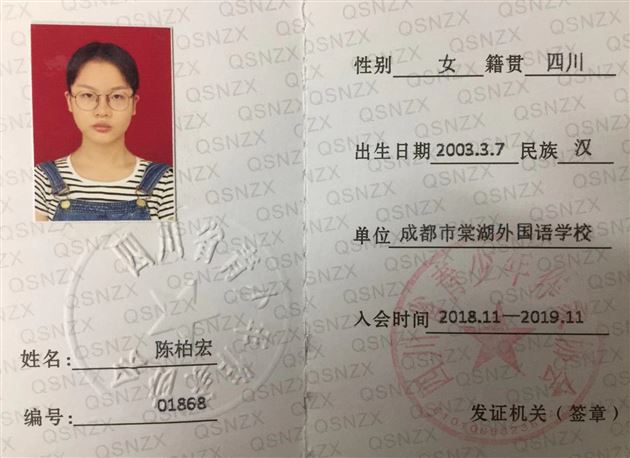 性别 女 籍贯 四川
出生日期 2003.3.7 民族 汉
单位 成都市棠湖外国语学校
入会时间 2018.11—2019.11
发证机关（签章）
姓名: 陈柏宏
编号: 01868
QSNZX